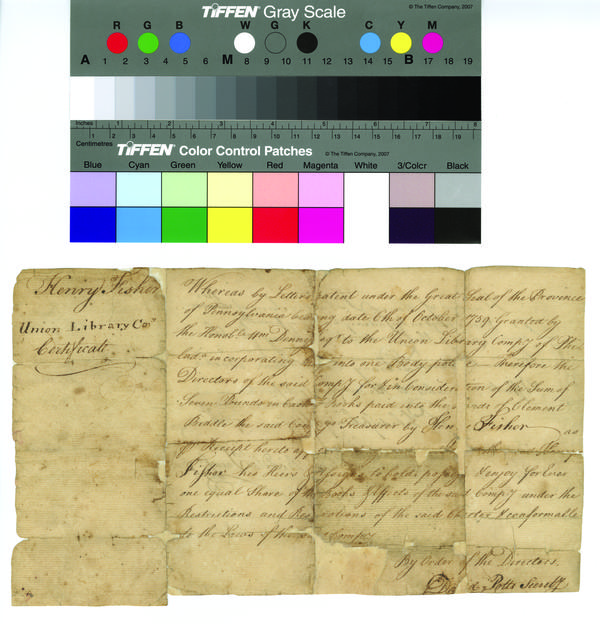 TIFFEN Gray Scale
© The Tiffen Company, 2007
R G B W G K C Y M
A 1 2 3 4 5 6 M 8 9 10 11 12 13 14 15 B 17 18 19
Inches 1 2 3 4 5 6 7 8
Centimetres 1 2 3 4 5 6 7 8 9 10 11 12 13 14 15 16 17 18 19
TIFFEN Color Control Patches
© The Tiffen Company, 2007
Blue Cyan Green Yellow Red Magenta White 3/Color Black
Henry Fisher
Union Library Coy
Certificate
Whereas by Letters patent under the Great Seal of the Province
of Pennsylvania dating date 6th of October 1759 Granted by
the Honble Wm Denny Esqr to the Union Library Compy of
incorporating into one Body Therefore the
Directors of the said Compy for & in Consideration of the Sum of
Seven Pounds in Books paid into the of Clement
Biddle the said Treasurer by Henry Fisher as
Receipt hereto
Fisher his Heirs & Assigns to hold & enjoy for Ever
one equal Share of the Books & Effects of the said Compy under the
Restrictions and of the said Charter & conformable
to the Laws of the Compy
By Order of the Directors,
Potts Secrety